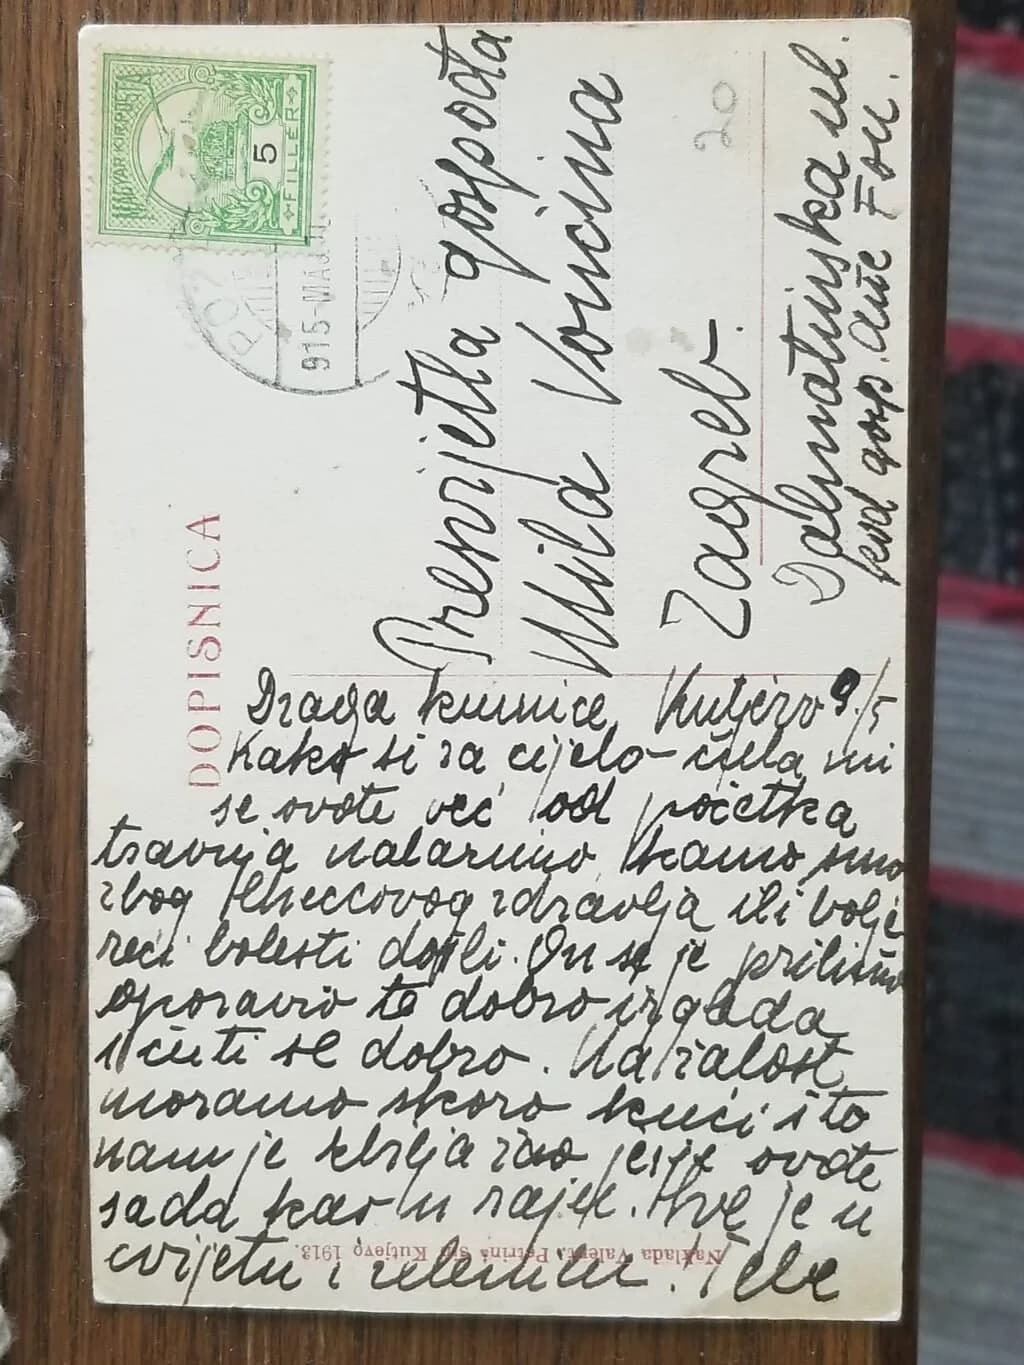 MAGYAR KIR. POSTA
5
FILLÉR
POZ
915 MÁJ.
DOPISNICA
20
Presvjetla gospođa
Mila Vončina
Zagreb.
Dalmatinska ul.
kod gosp. Fon.
Draga kumice, Kutjevo 9/5
Kako si za cijelo čula mi
se ovdte već od počетка
travnja nalazimo, kamo smo
zbog zdravlja ili bolje
reći bolesti došli. On se je prilično
oporavio te dobro izgleda
i ćuti se dobro. Na žalost
moramo skoro kući i to
nam je žao jer je ovdte
sada kao u raju. Sve je u
cvijetu i zelenilu. Tebe
Naklada Valent. Petrina Kutjevo 1913.